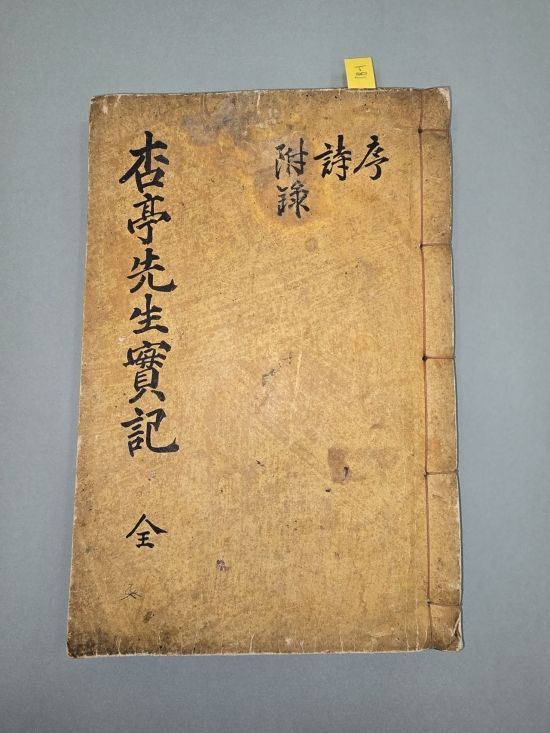 序
詩
附錄
杏亭先生實記
全